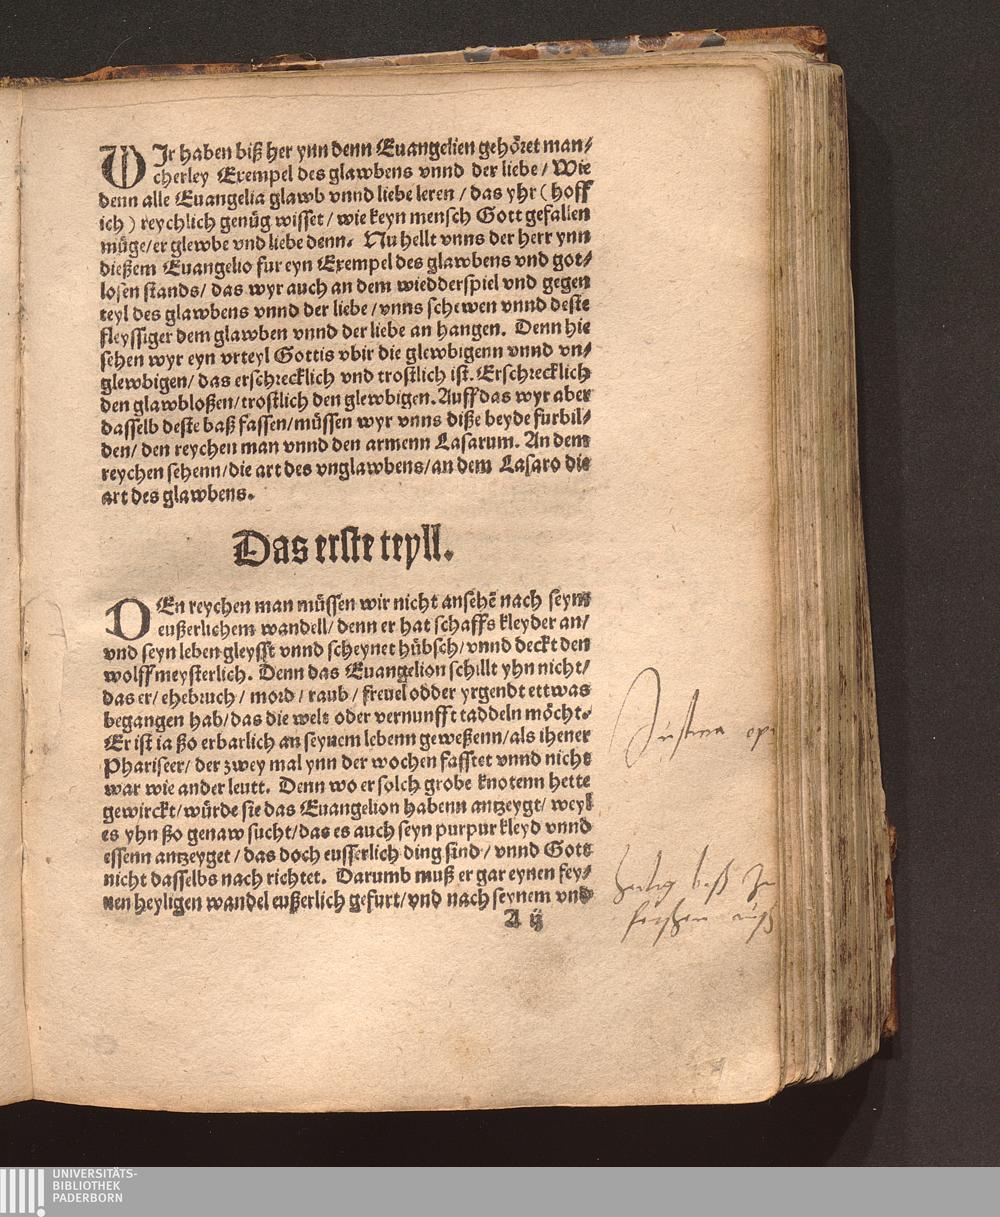 WIr haben biß her ynn denn Euangelien gehöret man⸗
cherley Exempel des glawbens vnnd der liebe / Wie
denn alle Euangelia glawb vnnd liebe leren / das yhr ( hoff
ich ) reychlich genüg wisset / wie keyn mensch Gott gefallen
müge / er glewbe vnd liebe denn. Nu hellt vnns der herr ynn
dießem Euangelio fur eyn Exempel des glawbens vnd got⸗
losen stands / das wyr auch an dem wiedderspiel vnd gegen
teyl des glawbens vnnd der liebe / vnns schewen vnnd deste
fleyssiger dem glawben vnnd der liebe an hangen. Denn hie
sehen wyr eyn vrteyl Gottis vbir die glewbigenn vnnd vn⸗
glewbigen / das erschrecklich vnd trostlich ist. Erschrecklich
den glawbloßen / trostlich den glewbigen. Auff das wyr aber
dasselb deste baß fassen / müssen wyr vnns diße beyde furbil⸗
den / den reychen man vnnd den armenn Lasarum. An dem
reychen sehenn / die art des vnglawbens / an dem Lasaro die
art des glawbens.
Das erste teyll.
DEn reychen man müssen wir nicht ansehē nach seym
eußerlichem wandell / denn er hat schaffs kleyder an /
vnd seyn leben gleysst vnnd scheynet hübsch / vnnd deckt den
wolff meysterlich. Denn das Euangelion schillt yhn nicht /
das er / ehebruch / mord / raub / freuel odder yrgendt ettwas
begangen hab / das die welt oder vernunfft taddeln möcht.
Er ist ia ßo erbarlich an seynem lebenn geweßenn / als ihener
Phariseer / der zwey mal ynn der wochen fasstet vnnd nicht
war wie ander leutt. Denn wo er solch grobe knotenn hette
gewirckt / würde sie das Euangelion habenn antzeygt / weyl
es yhn ßo genaw sucht / das es auch seyn purpur kleyd vnnd
essenn antzeyget / das doch eusserlich ding sind / vnnd Gott
nicht dasselbs nach richtet. Darumb muß er gar eynen fey⸗
nen heyligen wandel eußerlich gefurt / vnd nach seynem vnd
A ij
UNIVERSITÄTS-
BIBLIOTHEK
PADERBORN